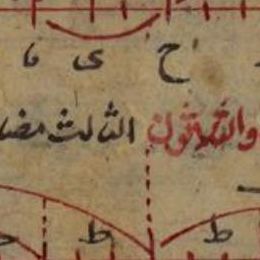 ح ى
والثلثون الثالث مضا
ط ط